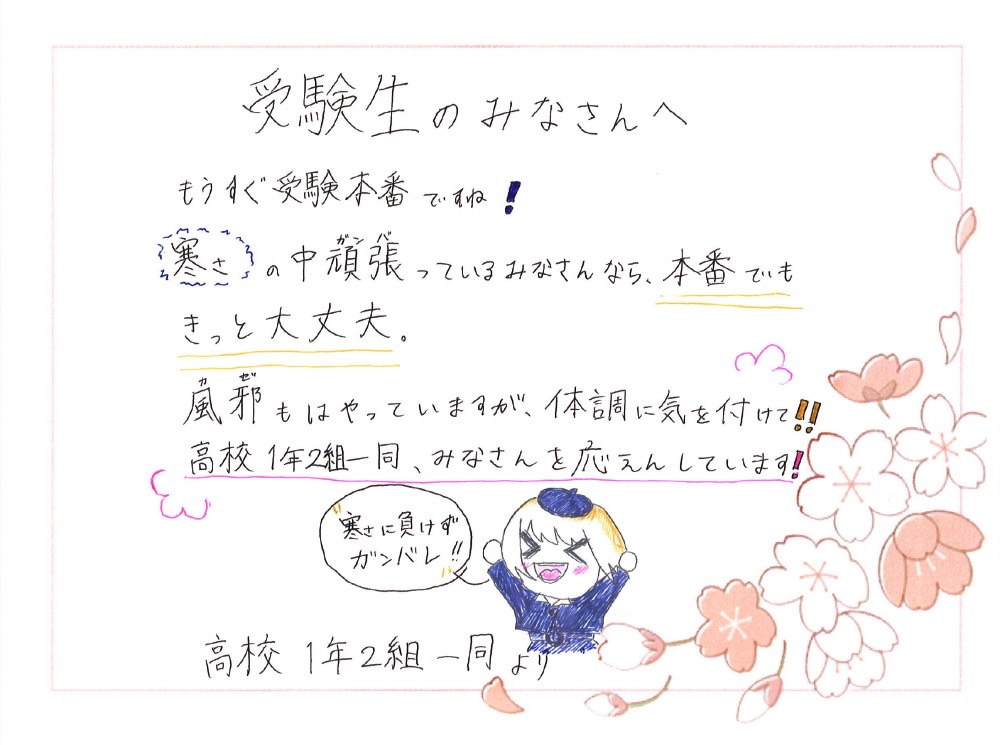 受験生のみなさんへ
もうすぐ受験本番ですね!
寒さの中頑張っているみなさんなら、本番でも
ガンバ
きっと大丈夫。
カゼ
風邪もはやっていますが、体調に気を付けて!!
高校1年2組一同、みなさんを応えんしています!
オウ
寒さに負けず
ガンバレ!!
高校1年2組一同より